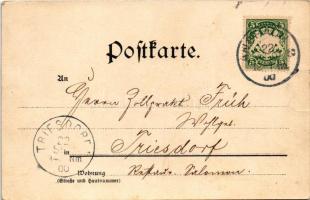 Postkarte.
An
Herrn Zollprakt. Früh
Wohlget.
Triesdorf
in
Wohnung
(Straße und Hausnummer)
Restaur. Salomon.
TRIESDORF
00
22
00